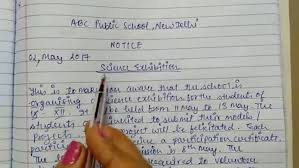 ABC Public School, New Delhi
NOTICE
02, May 2017
Science Exhibition
This is to make you aware that the school is
organising a science exhibition for the students of
- XII. It will be held from 11 May to 13 May. The
students are invited to submit their models/
projects. project will be felicitated. Each
participation certificate.
is 8th May. The
required to volunteer